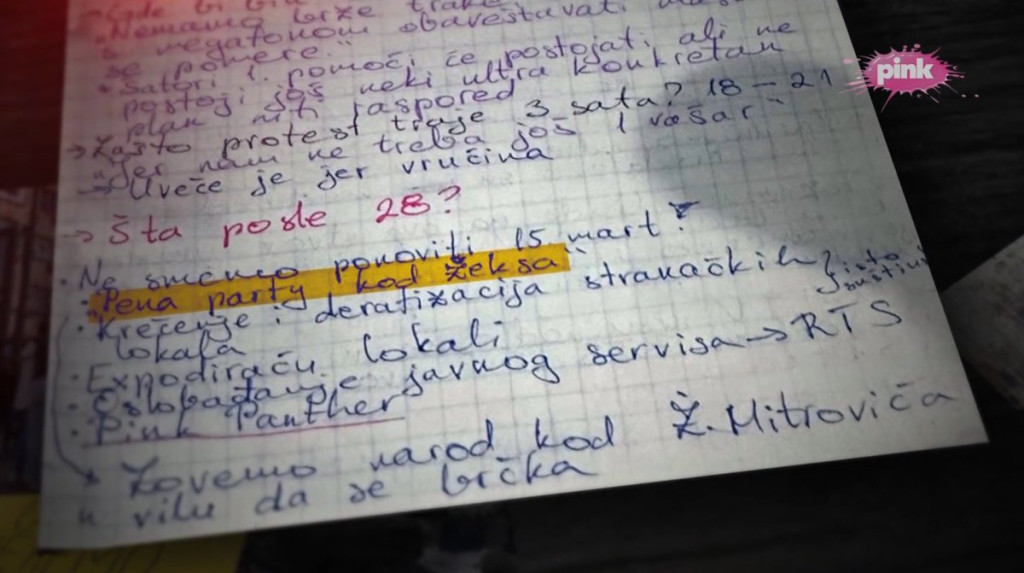 "Nemamo brže trake
s megafonom obaveštavati
se pomere"
• Šatori 1. pomoći će postojati, ali ne
postoji još neki ultra konkretan
plan niti raspored
→ Zašto protest traje 3 sata? 18-21
"Jer nam ne treba još 1 vašar"
→ Uveče je jer vrućina
→ Šta posle 28?
• Ne smemo ponoviti 15 mart!
• "Pena party kod Žeksa"
• Krečenje i deratizacija stranačkih } isto
lokala
• Expodiraću lokali
• Oslobađanje javnog servisa → RTS
• Pink Panther
→ Zovemo narod kod Ž. Mitrovića
u vilu da se brčka
pink